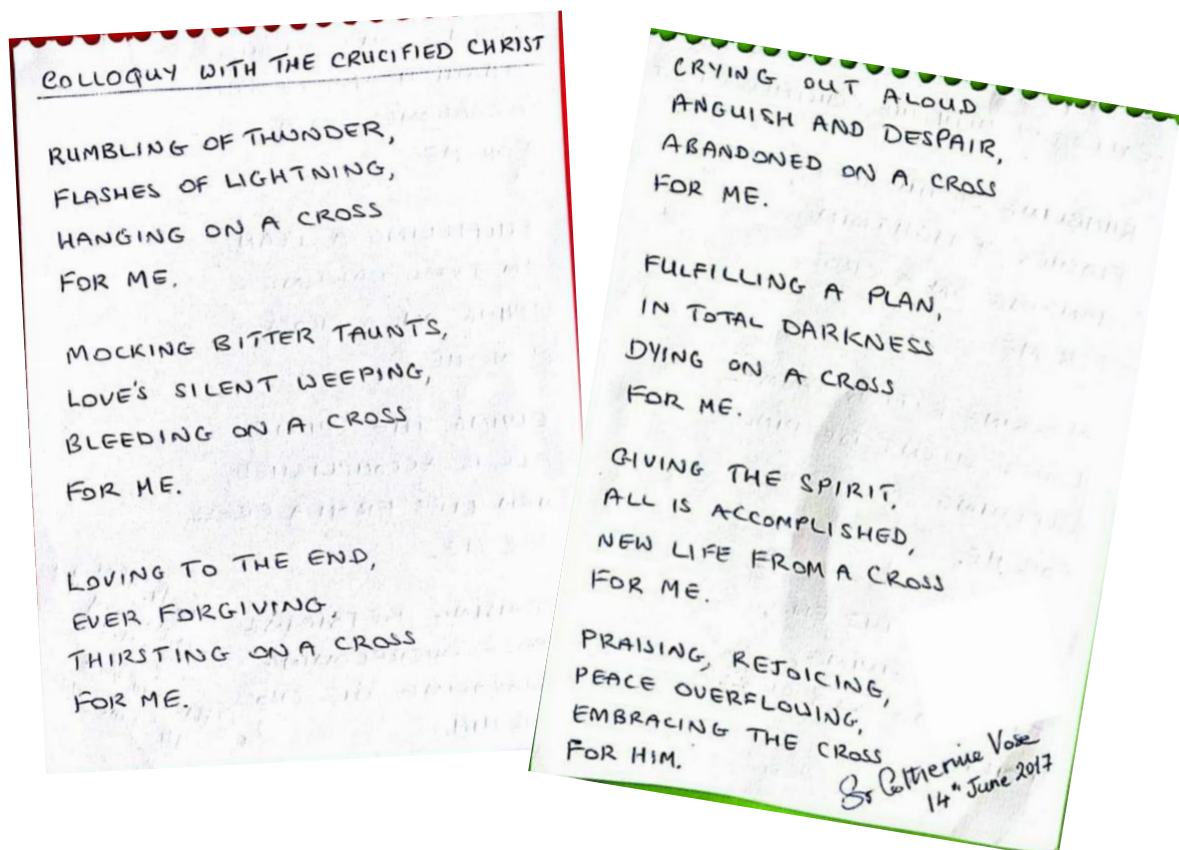 COLLOQUY WITH THE CRUCIFIED CHRIST
RUMBLING OF THUNDER,
FLASHES OF LIGHTNING,
HANGING ON A CROSS
FOR ME.
MOCKING BITTER TAUNTS,
LOVE'S SILENT WEEPING,
BLEEDING ON A CROSS
FOR ME.
LOVING TO THE END,
EVER FORGIVING,
THIRSTING ON A CROSS
FOR ME.
CRYING OUT ALOUD
ANGUISH AND DESPAIR,
ABANDONED ON A CROSS
FOR ME.
FULFILLING A PLAN,
IN TOTAL DARKNESS
DYING ON A CROSS
FOR ME.
GIVING THE SPIRIT.
ALL IS ACCOMPLISHED,
NEW LIFE FROM A CROSS
FOR ME.
PRAISING, REJOICING,
PEACE OVERFLOWING,
EMBRACING THE CROSS
FOR HIM.
Sr Catherine Vose
14th June 2017